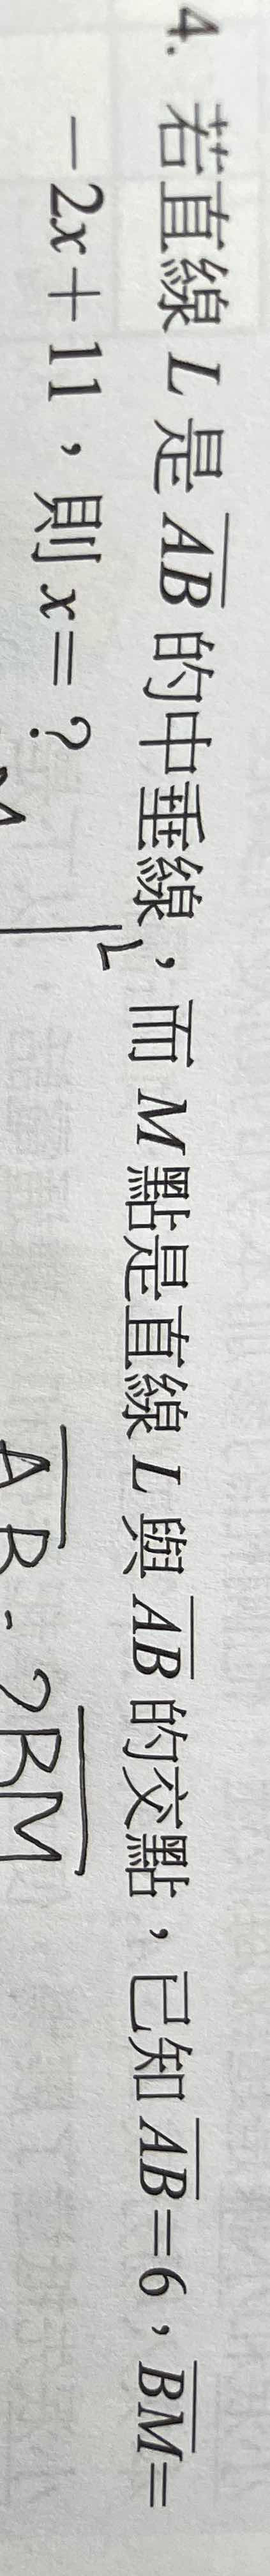 4. 若直線 L 是 A̅B̅ 的中垂線，而 M 點是直線 L 與 A̅B̅ 的交點，已知 A̅B̅=6，B̅M̅=
−2x+11，則 x=？
L
A̅B̅ = 2B̅M̅